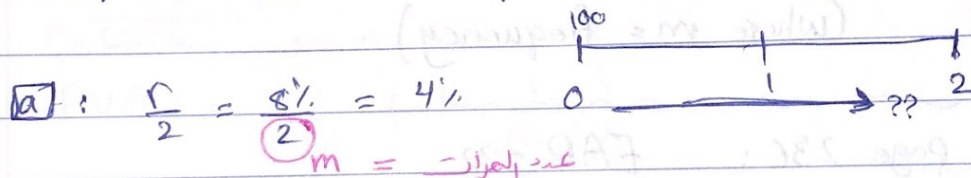 100
[a] : r/2 = 8%/2 = 4% 0 1 2
→ ??
m = عدد المرات